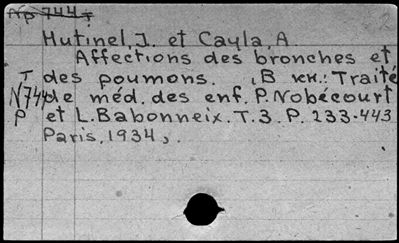 Np 744 T
Hutinel, J. et Cayla, A
Affections des bronches et
T des poumons. , В кн.: Traité
N744 de méd. des enf. P. Nobécourt
P et L. Babonneix. T. 3. P. 233-443
Paris, 1934,.